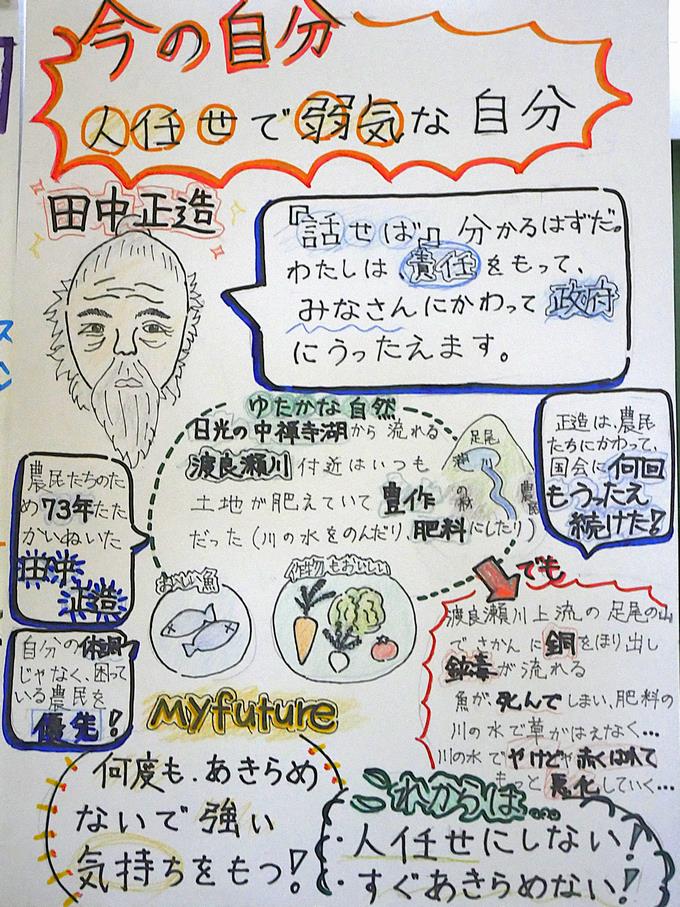 今の自分
人任せで弱気な自分
田中正造
『話せば』分かるはずだ。
わたしは責任をもって、
みなさんにかわって政府
にうったえます。
ゆたかな自然
日光の中禅寺湖から流れる
渡良瀬川付近はいつも
土地が肥えていて豊作
だった(川の水をのんだり、肥料にしたり)
足尾
正造は、農民
たちにかわって、
国会に何回
もうったえ
続けた!!
農民たちのた
め73年たた
かいぬいた
田中
正造
おいしい魚
作物もおいしい
でも
渡良瀬川上流の足尾の山
でさかんに銅をほり出し
鉱毒が流れる
魚が死んでしまい、肥料の
川の水で草がはえなく…
川の水でやけどや赤くはれて
もっと悪化していく…
自分の
じゃなく、困って
いる農民を
優先!
Myfuture
何度も、あきらめ
ないで強い
気持ちをもつ!
これからは…
・人任せにしない!
・すぐあきらめない!